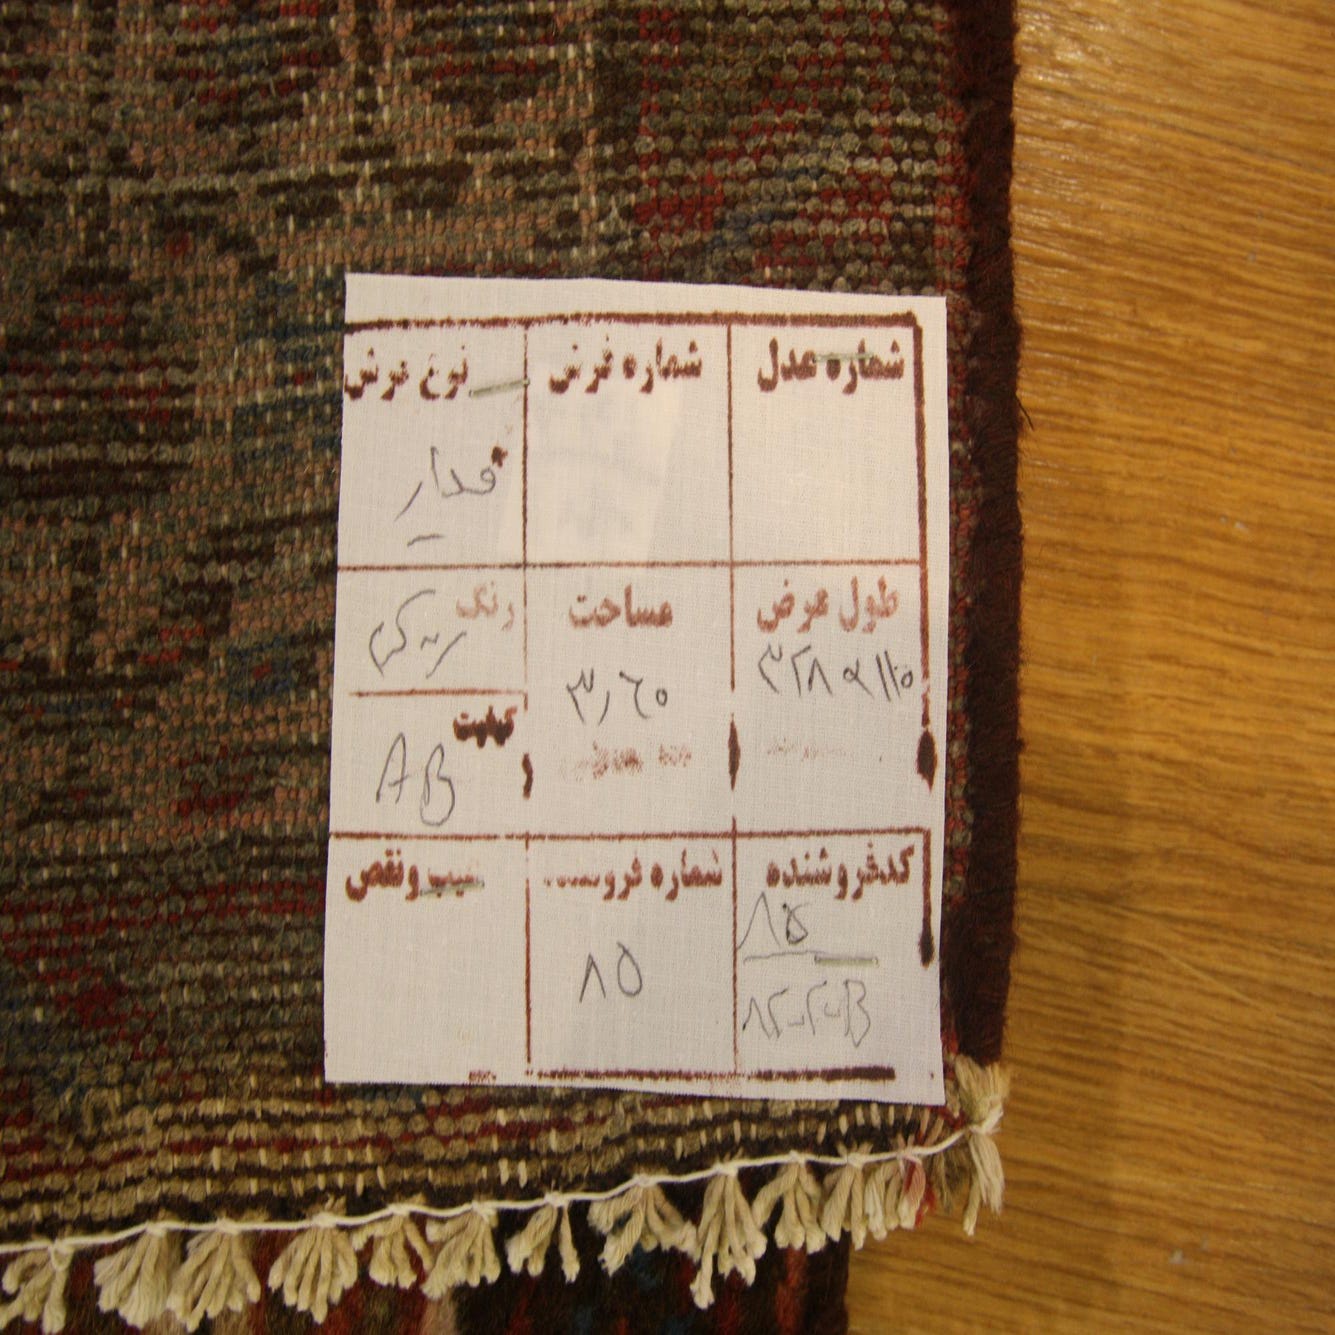 شماره عدل
شماره فرش
نوع فرش
طول عرض
۳۲۸ × ۱۱۰
مساحت
۳٫۶۰
رنگ
کیفیت
AB
کدفروشنده
۸۵
شماره
۸۵
عیب و نقص